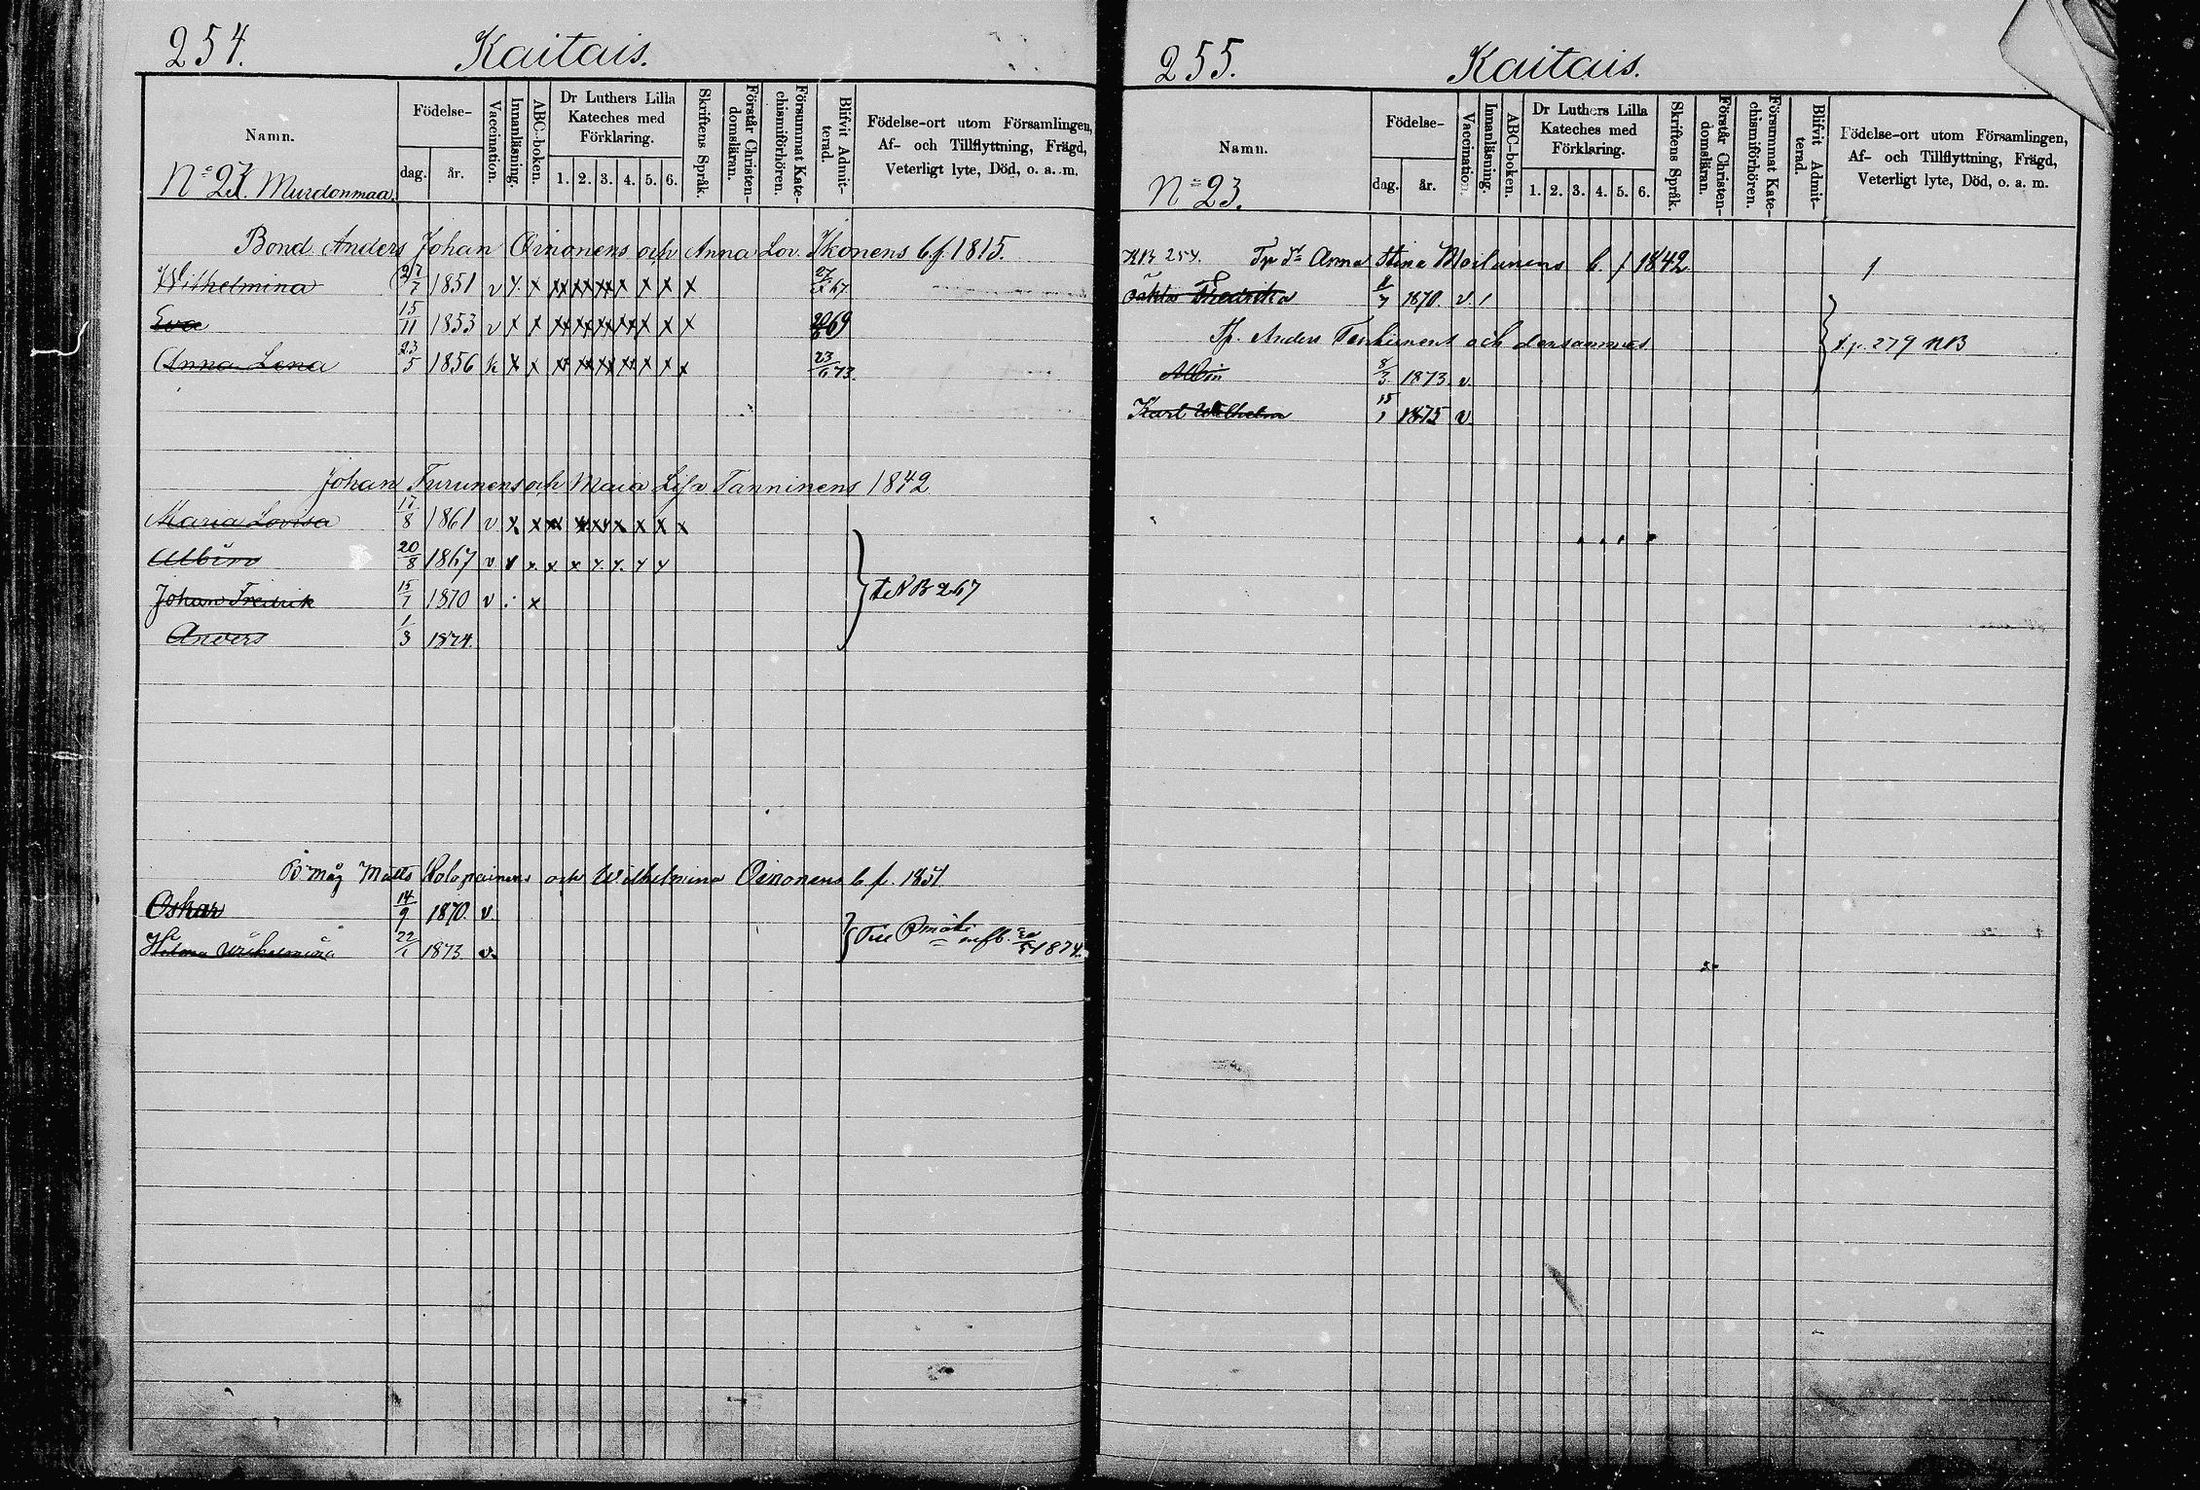 254. Kaitais.
Namn. Födelse- dag. år. Vaccination. Innanläsning. ABC-boken. Dr Luthers Lilla Kateches med Förklaring. 1. 2. 3. 4. 5. 6. Skriftens Språk. Förstår Christendomsläran. Försummat Katechismiförhören. Blifvit Admitterad. Födelse-ort utom Församlingen, Af- och Tillflyttning, Frägd, Veterligt lyte, Död, o. a. m.
No 2 Murdonmaa.
Bond. Anders Johan Oinonens och Anna Lov. Ikonens b.f. 1815.
Wilhelmina 27/7 1851 v x x x x x x x x x 67
Eva 15/11 1853 v x x x x x x x x x 69
Anna Lena 23/5 1856 k x x x x x x x x x 23/6 73.
Johan Turunens och Maia Lisa Tanninens 1842
Maria Lovisa 17/8 1861 v x x x x x x x x x
Albin 20/8 1867 v x x x x x x x x
Johan Fredrik 15/7 1870 v x
Anders 1/3 1874.
} t NB 267
B måg Matts Kolopainens och Wilhelmina Oinonens b f. 1851
Oskar 14/9 1870. v.
Hilma Wilhelmina 22/1 1873. v.
} Till 1874.
255. Kaitais.
Namn. Födelse- dag. år. Vaccination. Innanläsning. ABC-boken. Dr Luthers Lilla Kateches med Förklaring. 1. 2. 3. 4. 5. 6. Skriftens Språk. Förstår Christendomsläran. Försummat Katechismiförhören. Blifvit Admitterad. Födelse-ort utom Församlingen, Af- och Tillflyttning, Frägd, Veterligt lyte, Död, o. a. m.
No 23.
254. Anna Stina Moilanens b. f 1842
Fredrika 1870. v. /
Anders och densammes
Albin 8/3 1873. v.
} 279 NB
Karl Wilhelm 15/1 1875 v.